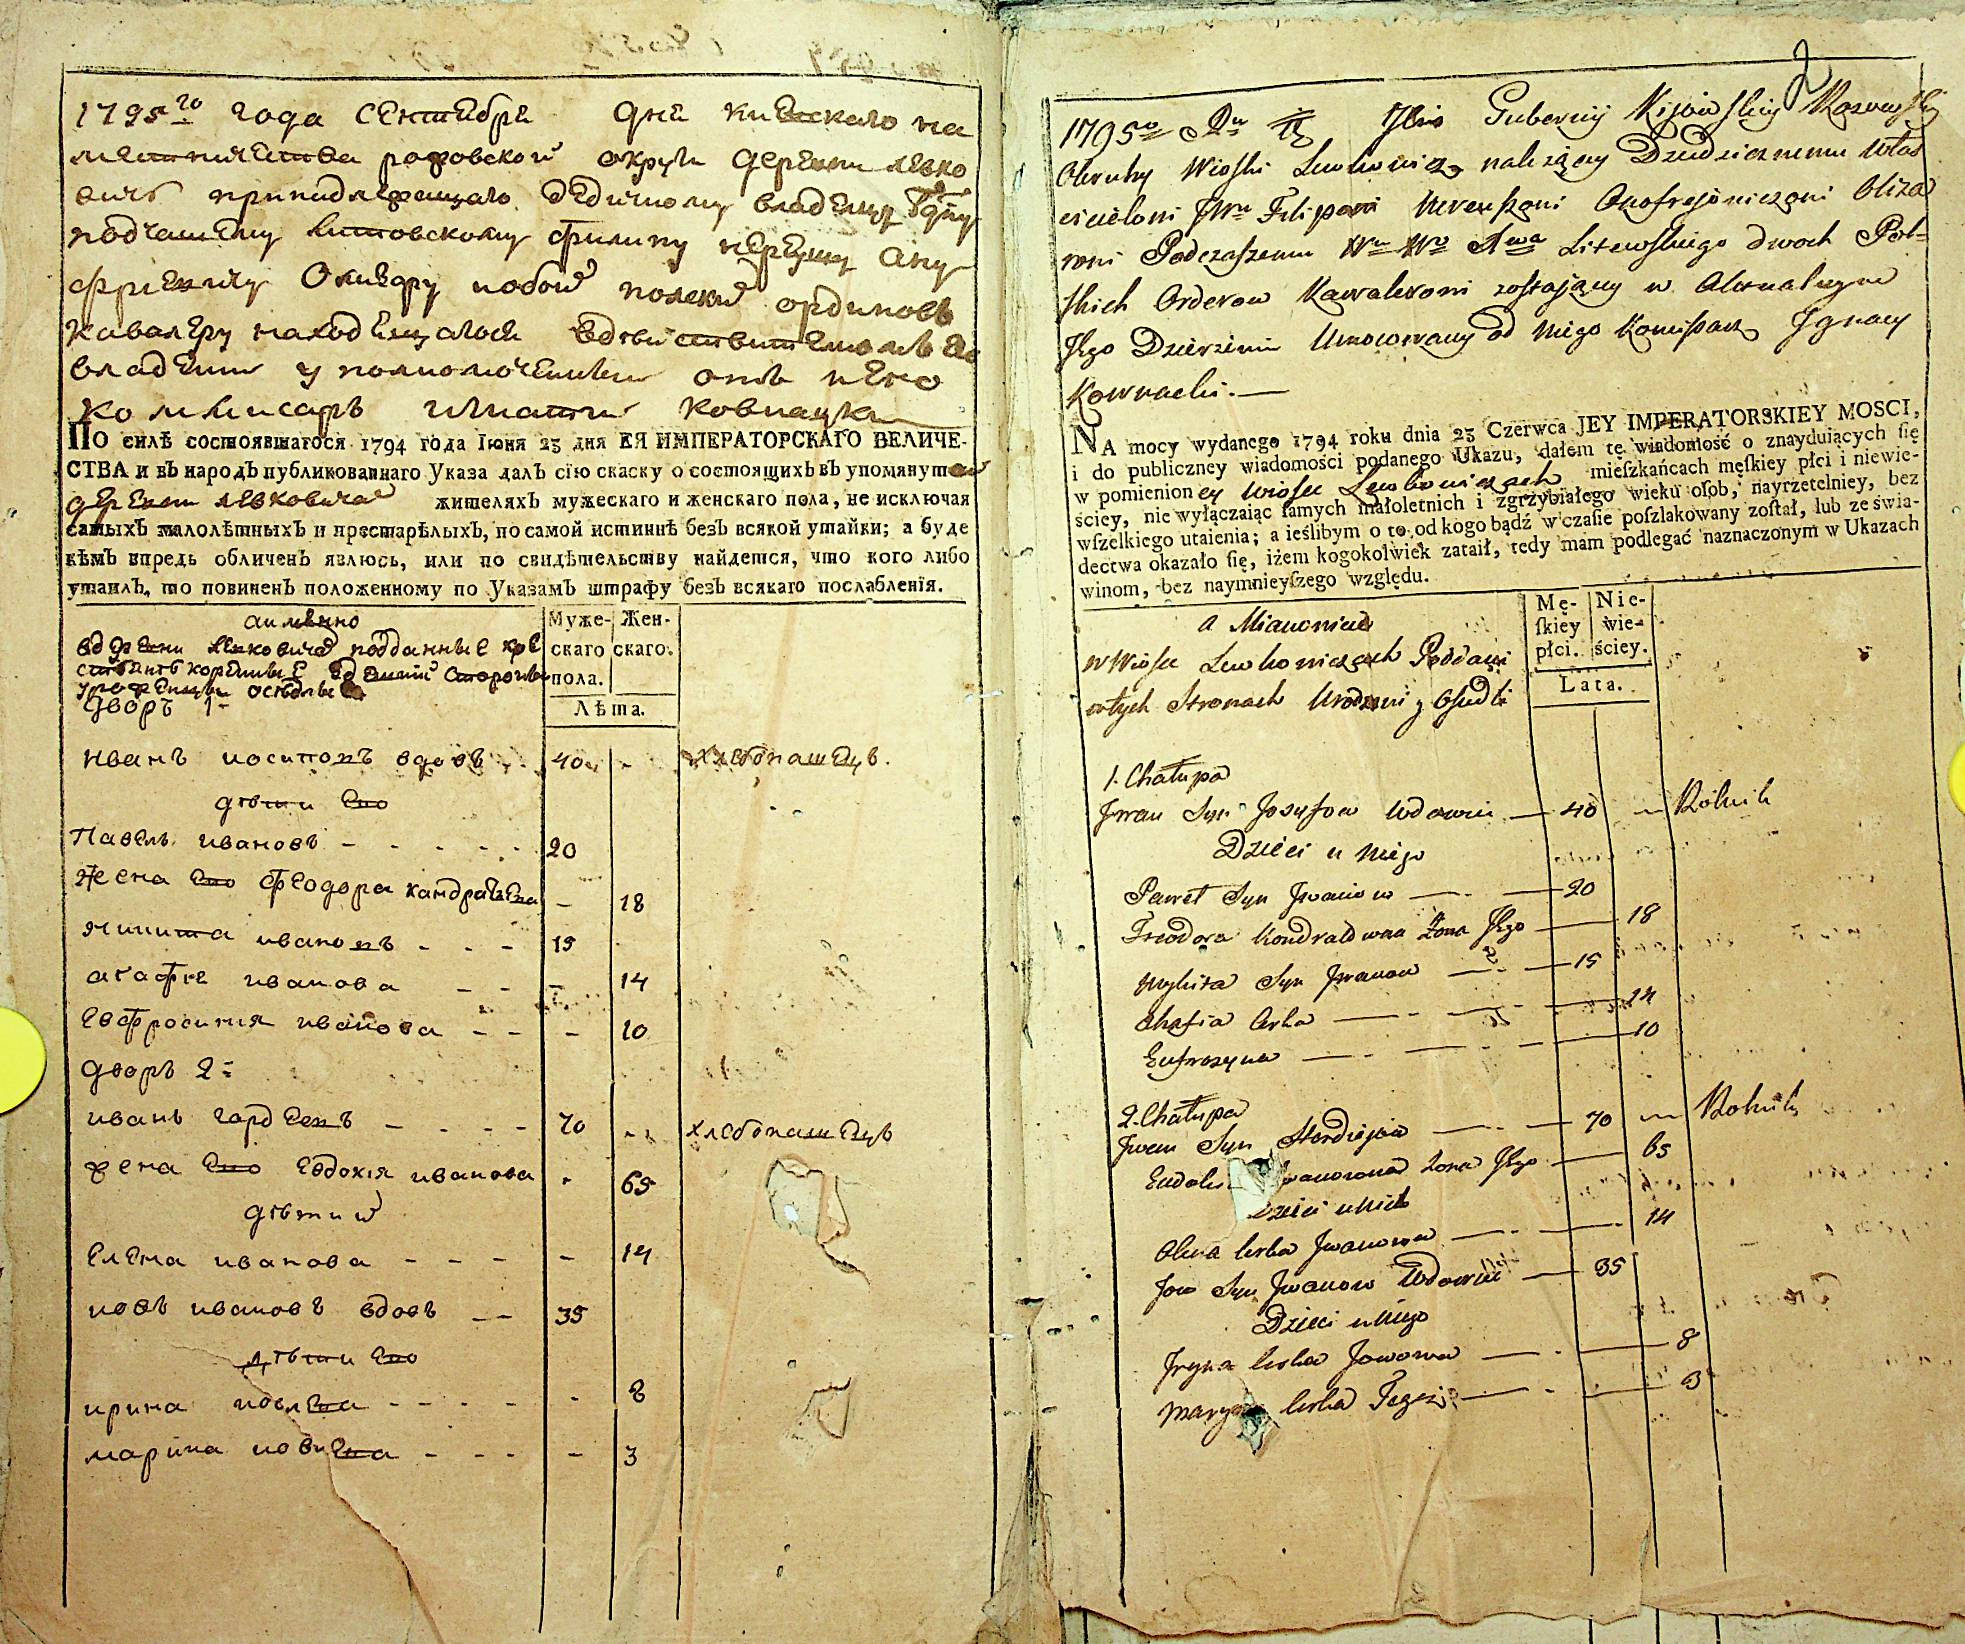 1795го года сентября дня киевскаго на
местничества рафовской округи деревни левко
вичъ принадлежащаго дедичному владелцу
подчашему литовскому филипу нереушу ану
фриевичу Оливару и обой полский ордиповъ
кавалеру находящагося вдействителномъ его
владении уполномоченный отъ него
коммисаръ игнатий ковнацки
По силѣ состоявшагося 1794 года Іюня 23 дня ЕЯ ИМПЕРАТОРСКАГО ВЕЛИЧЕ-
СТВА и въ народъ публикованнаго Указа далъ сію скаску о состоящихъ въ упомянутой
деревни левковичах жителяхъ мужескаго и женскаго пола, не исключая
самыхъ малолѣтныхъ и престарѣлыхъ, по самой истиннѣ безъ всякой утайки; а буде
кѣмъ впредь обличенъ явлюсь, или по свидѣтельству найдется, что кого либо
утаилъ, то повиненъ положенному по Указамъ штрафу безъ всякаго послабленія.
аимянно
Муже- Жен-
скаго скаго.
пола.
Лѣта.
вдеревни левковичах подданные кре
стьянъ коренные
уроженцы оседлые
дворъ 1-
иванъ иосиповъ вдовъ - 40 - хлебопашецъ.
дѣти его
павелъ ивановъ - - - - - 20
жена его феодора кандратьева - 18
никита ивановъ - - - 15
агафия иванова - - - 14
евфросиния иванова - - - 10
дворъ 2-
иванъ гордеевъ - - - - 70 - хлебопашецъ
жена его евдокия иванова - 65
дѣти их
елена иванова - - - - 14
иовъ ивановъ вдовъ - - 35
дѣти его
ирина иовлева - - - - - 8
марина иовлева - - - - 3
2
1795го Dn Jbris Gubernij Kijowskiey Rzowskiey
Okruhy Wioski Lewkowicz, należącey Dziedzicznemu Włas
cicielowi JWu Filipowi Nereuszowi Onofrejowiczowi Oliza
rowi Podczaszemu Wu Xo Litewskiego dwoch Pol-
skich Orderow Kawalerowi zostającey w Aktualnym
Jego Dzierzeniu Umocowany od niego Komisarz Ignacy
Kownacki.—
NA mocy wydanego 1794 roku dnia 23 Czerwca JEY IMPERATORSKIEY MOSCI,
i do publiczney wiadomości podanego Ukazu, dałem tę wiadomość o znayduiących ſię
w pomienioney wiosce Lewkowiczach mieſzkańcach męſkiey płci i niewie-
ściey, nie wyłączaiąc ſamych małoletnich i zgrzybiałego wieku oſob, nayrzetelniey, bez
wſzelkiego utaienia; a ieślibym o to od kogo bądź w czaſie poſzlakowany zoſtał, lub ze świa-
dectwa okazało ſię, iżem kogokolwiek zataił, tedy mam podlegać naznaczonym w Ukazach
winom, bez naymnieyſzego względu.
Mę- Nie-
ſkiey wie-
płci. ściey.
Lata.
a Mianowicie
w Wiosce Lewkowiczach Poddani
w tych Stronach Urodzeni y Osiedli
1. Chałupa
Jwan Syn Jozyfow Wdowiec — 40 — Rolnik
Dzieci u niego
Paweł Syn Jwanow — — 20
Teodora Kondratowna Żona Jego — 18
Mykita Syn Jwanow — — 15
Ahafia Corka — — — 14
Eufrozyna — — — 10
2. Chałupa
Jwan Syn Hordiejow — — 70 — Rolnik
Eudok Jwanowna Żona Jego — 65
Dzieci u nich
Olena Corka Jwanowa — — 14
Jow Syn Jwanow Wdowiec — 35
Dzieci u niego
Jryna Corka Jowowa — — 8
Maryna Corka Tegoż — — 3